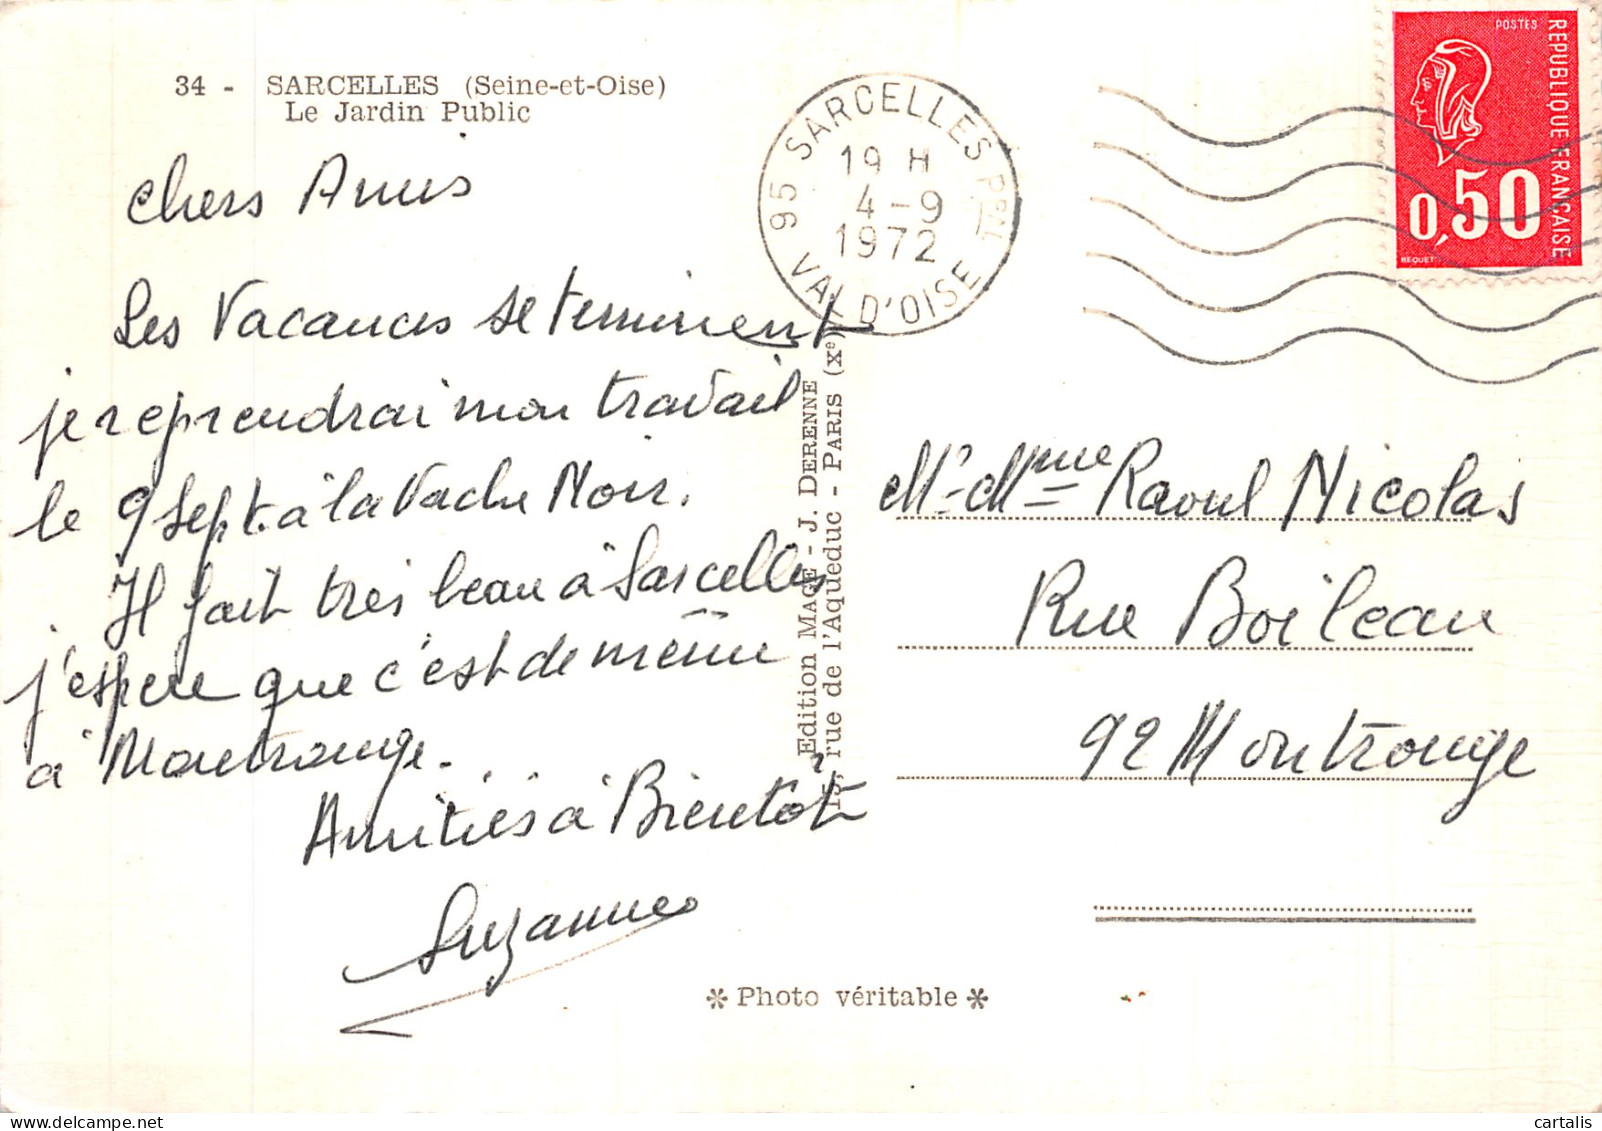 34 - SARCELLES (Seine-et-Oise)
Le Jardin Public
Chers Amis
Les Vacances se terminent
je reprendrai mon travail
le 9 Sept. à la Vache Noir.
Il fait très beau à Sarcelles
j'espere que c'est de même
à Montrouge.
Amitiés à Bientôt
Suzanne
95 SARCELLES PPAL
19 H
4 - 9
1972
VAL D'OISE
POSTES
REPUBLIQUE FRANCAISE
0,50
BEQUET
Edition MAGE - J. DERENNE
rue de l'Aqueduc - PARIS (Xe)
Mr - Mme Raoul Nicolas
Rue Boileau
92 Montrouge
* Photo véritable *
cartalis